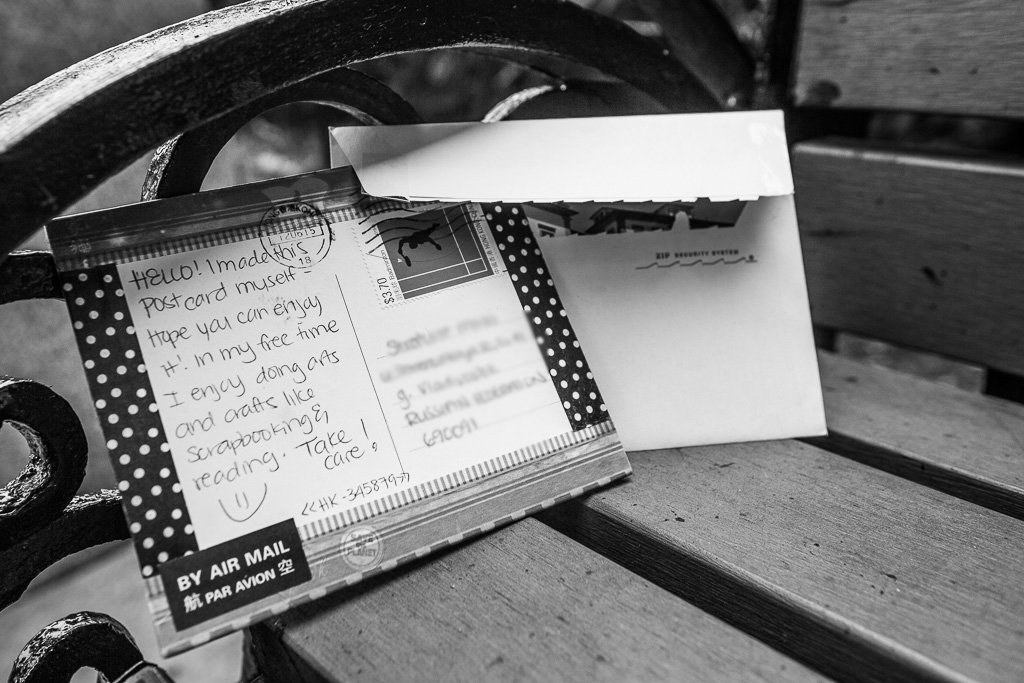 HELLO! I made this
postcard myself
Hope you can enjoy
it! In my free time
I enjoy doing arts
and crafts like
scrapbooking &
reading. Take
care!
<<HK-345879>>
$3.70
18
g.
RUSSIAN FEDERATION
690091
BY AIR MAIL
航 PAR AVION 空
SAVE
PLANET
ZIP SECURITY SYSTEM